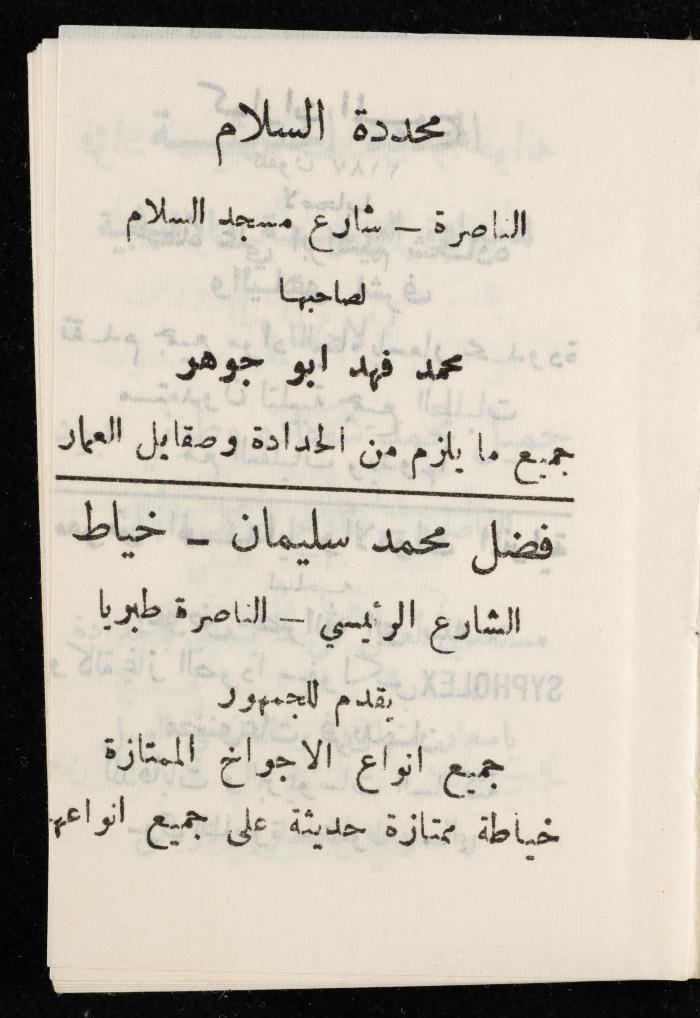 محددة السلام
الناصرة - شارع مسجد السلام
لصاحبها
محمد فهد ابو جوهر
جميع ما يلزم من الحدادة وصقايل العمار
فضل محمد سليمان - خياط
الشارع الرئيسي - الناصرة طبريا
يقدم للجمهور
جميع انواع الاجواخ الممتازة
خياطة ممتازة حديثة على جميع انواعها
SYPHOLEX